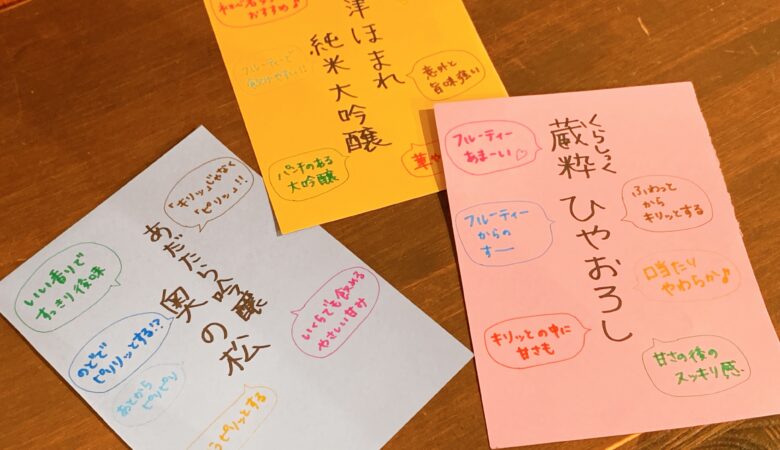 おすすめ♪
津ほまれ
純米大吟醸
フルーティーで
意外と
旨味強い
パンチのある
大吟醸
華や
くらしっく
蔵粋 ひやおろし
フルーティー
あまーい♡
フルーティー
からの
すー
ふわっと
から
キリッとする
口当たり
やわらか♪
キリッとの中に
甘さも
甘さの後の
スッキリ感
あだたら吟醸
奥の松
「キリッ」じゃなく
「ピリッ」!!
いい香りで
すっきり後味
のどで
ピリリッとする!?
あとから
ピリピリ
いくらでも飲める
やさしい甘み
ピリッとする